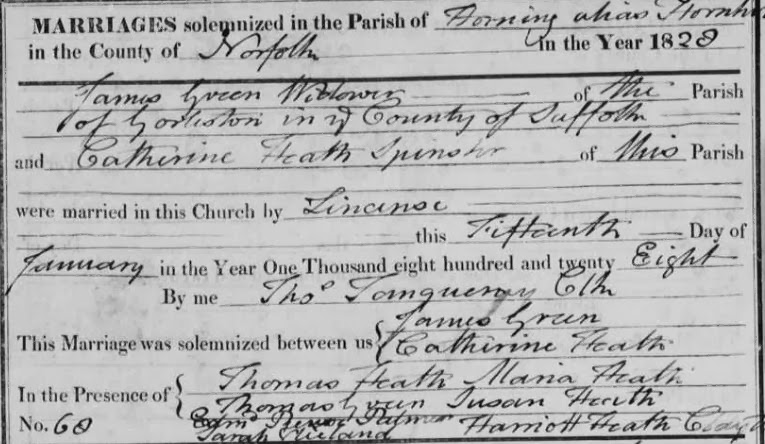 MARRIAGES solemnized in the Parish of Horning alias Horning
in the County of Norfolk in the Year 1828
James Green Widower of the Parish
of Gorleston in ye County of Suffolk
and Catherine Heath Spinster of this Parish
were married in this Church by Lincense
this Fifteenth Day of
January in the Year One Thousand eight hundred and twenty Eight
By me Thos Tanqueray Clk
This Marriage was solemnized between us { James Green
Catherine Heath
In the Presence of { Thomas Heath Maria Heath
Thomas Green Susan Heath
No. 68 Edmd Palmer Harriott Heath
Sarah